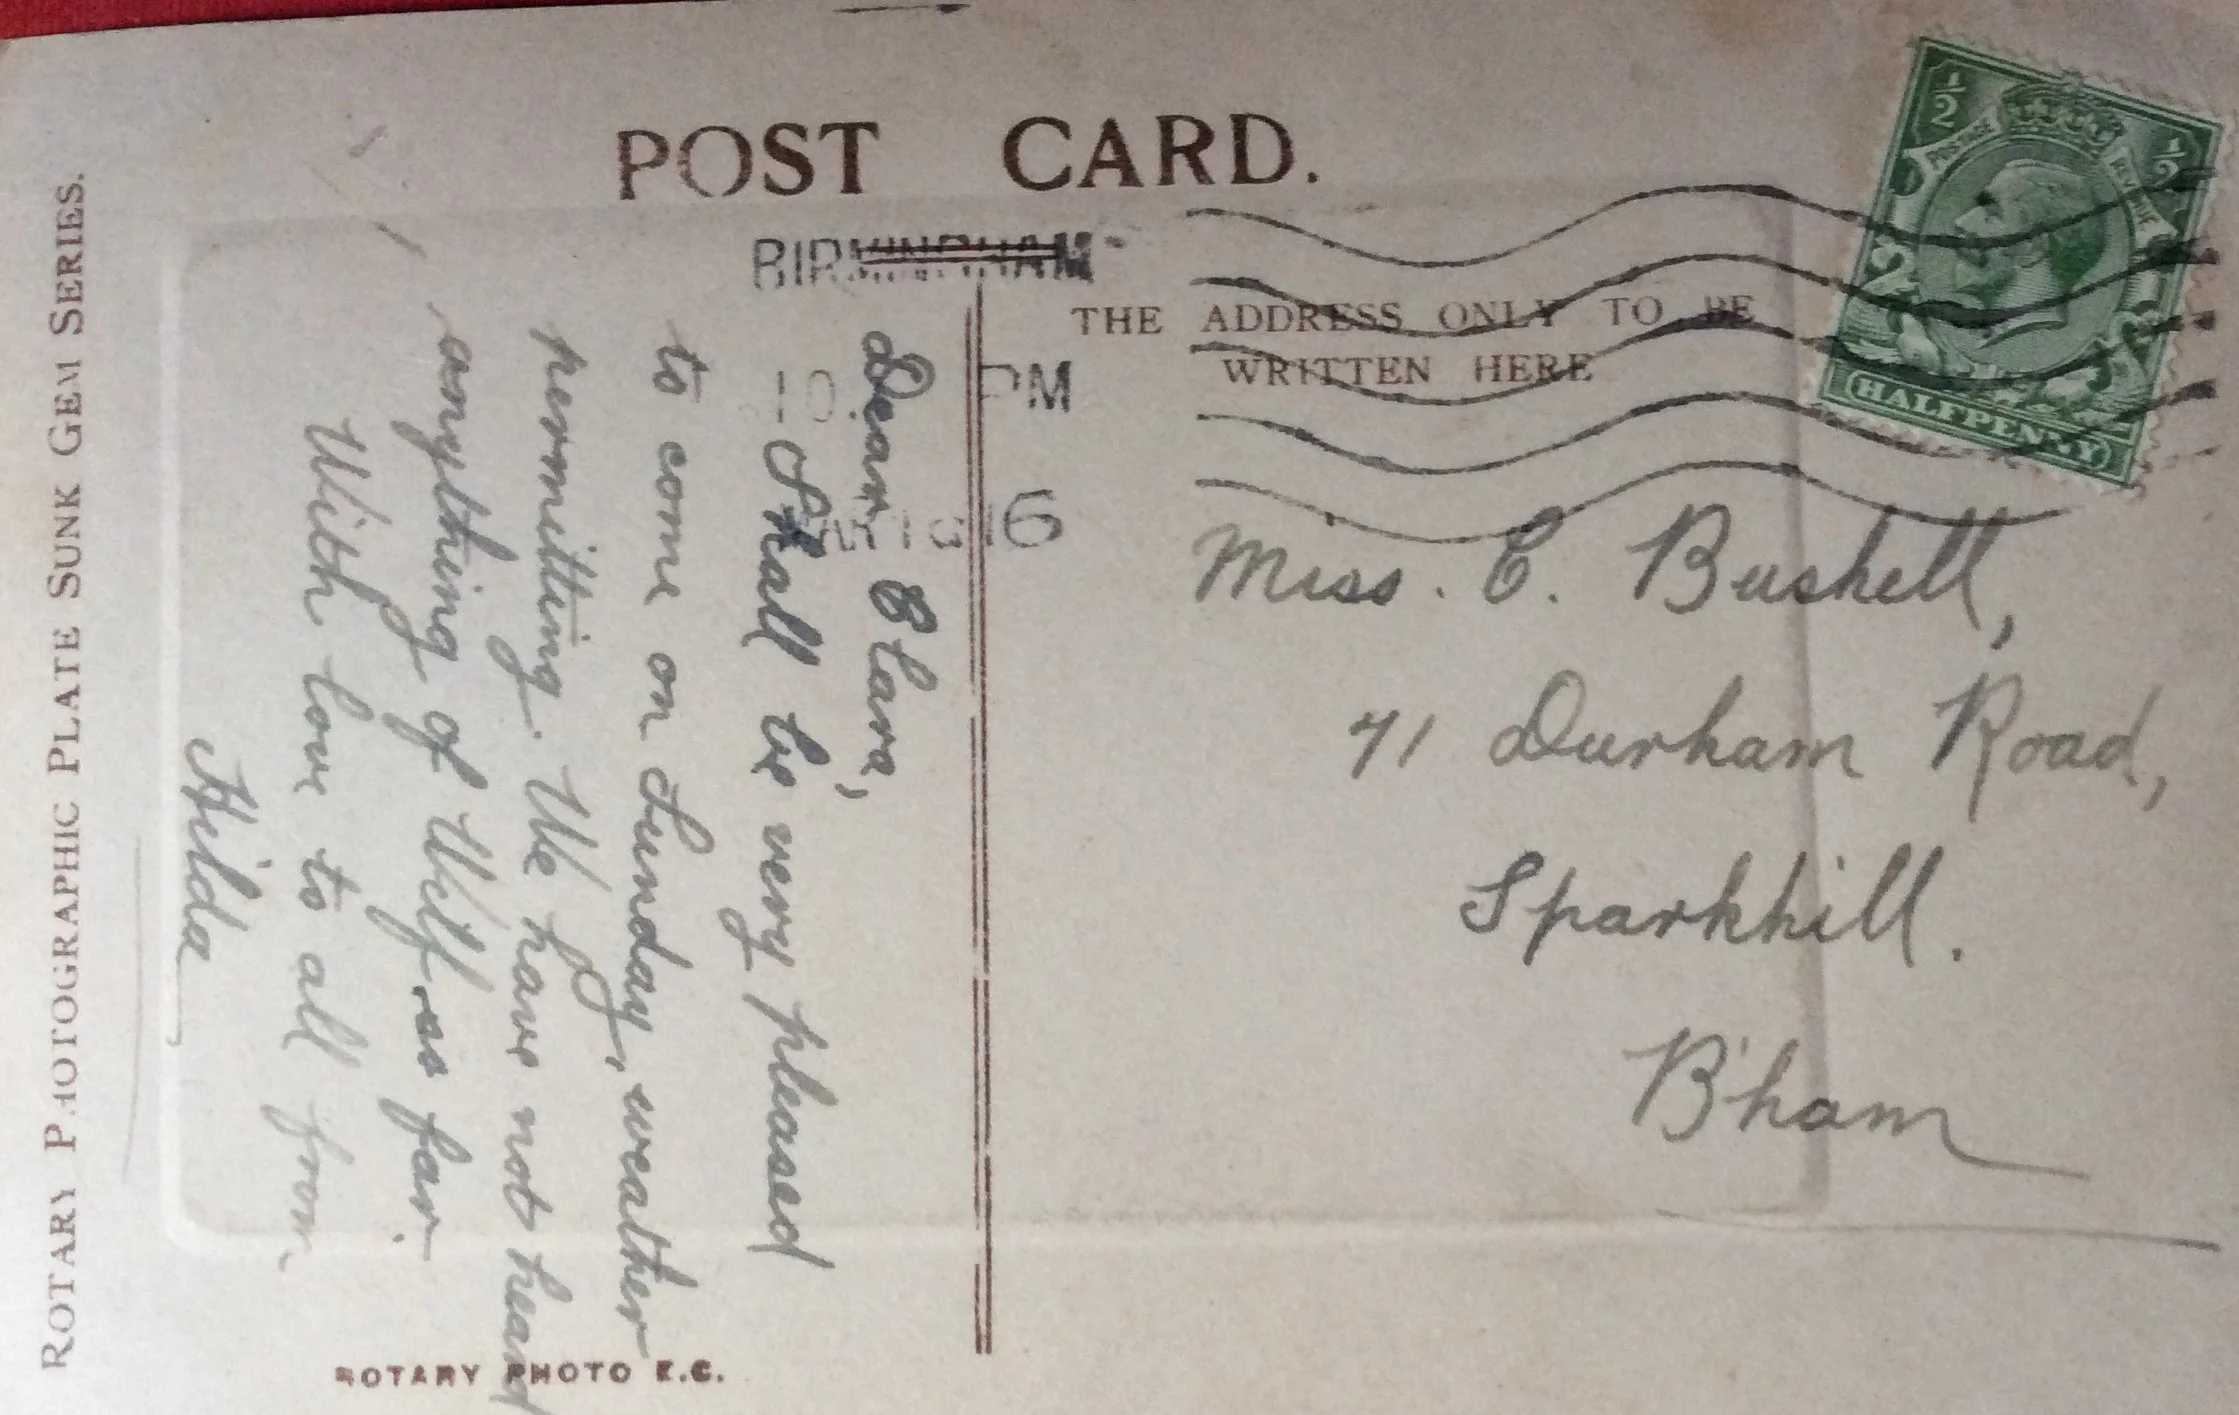 POST CARD.
BIRMINGHAM
PM
16
THE ADDRESS ONLY TO BE
WRITTEN HERE
½ ½
HALFPENNY
Dear Clara,
I shall be very pleased
to come on Sunday, weather
permitting. We have not heard
anything of Wilf as far.
With love to all from
Hilda
Miss. C. Bushell,
71 Durham Road,
Sparkhill.
B'ham
ROTARY PHOTOGRAPHIC PLATE SUNK GEM SERIES.
ROTARY PHOTO E.C.